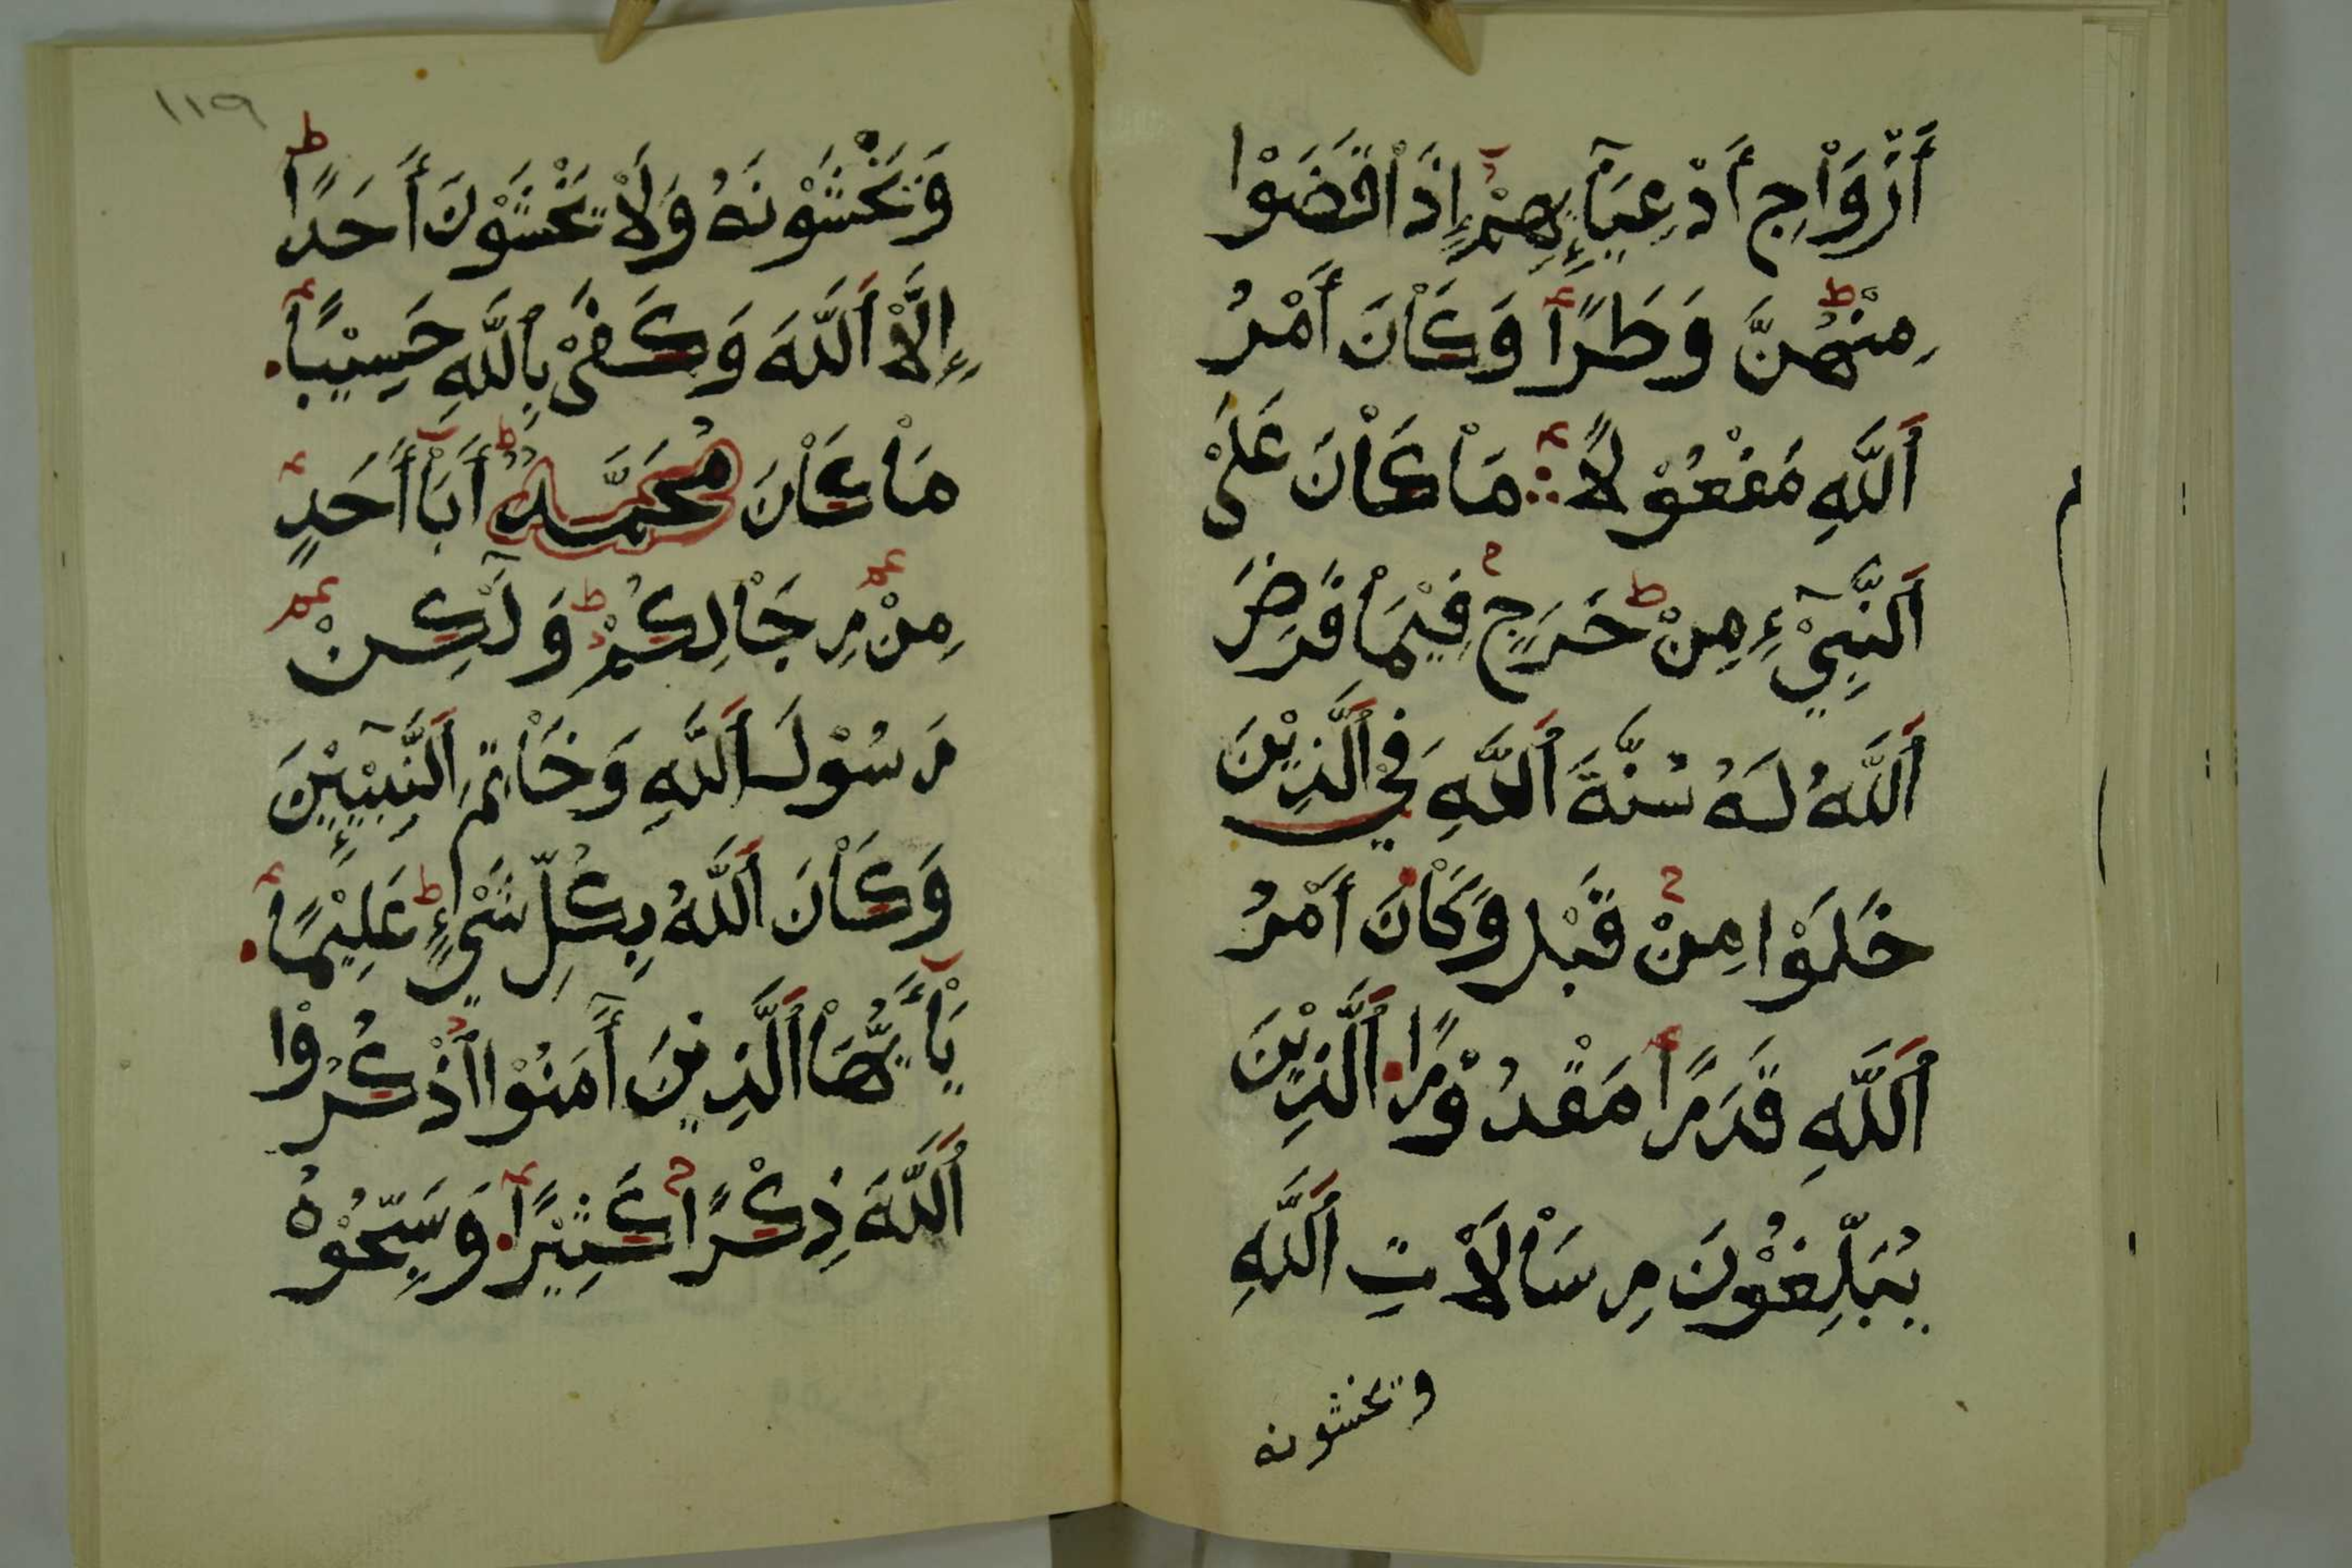 أَزْوَاْجِ أَدْعِيَآئِهِمْ إِذَاْ قَضَوْا
مِنْهُنَّ وَطَرًا وَكَاْنَ أَمْرُ
اَللَّهِ مَفْعُوْلًا مَاْ كَاْنَ عَلَىْ
اَلنَّبِيْٓءِ مِنْ حَرَجٍ فِيْمَاْ فَرَضَ
اَللَّهُ لَهُ سُنَّةَ اَللَّهِ فِيْ اَلَّذِيْنَ
خَلَوْا مِنْ قَبْل وَكَاْنَ أَمْرُ
اَللَّهِ قَدَرًا مَقْدُوْرًا اَلَّذِيْنَ
يُبَلِّغُوْنَ رِسَاْلَاْتِ اَللَّهِ
وتخشونه
١١٩
وَتَخْشَوْنَهُ وَلَاْ تَخْشَوْنَ أَحَدًا
إِلَّاْ اَللَّهَ وَكَفَىْ بِاللَّهِ حَسِيْبًا
مَاْ كَاْنَ مُحَمَّدٌ أَبَاْ أَحَدٍ
مِنْ رِجَاْلِكُمْ وَلَٓكِنْ
رَسُوْلَ اَللَّهِ وَخَاْتِمَ اَلنَّبِيٓئِيْنَ
وَكَاْنَ اَللَّهُ بِكُلِّ شَيْءٍ عَلِيْمًا
يَاْأَيُّهَاْ اَلَّذِيْنَ أٓمَنُوْا اُذْكُرُوْا
اُللَّهَ ذِكْرًا كَثِيْرًا وَسَبِّحُوْهُ